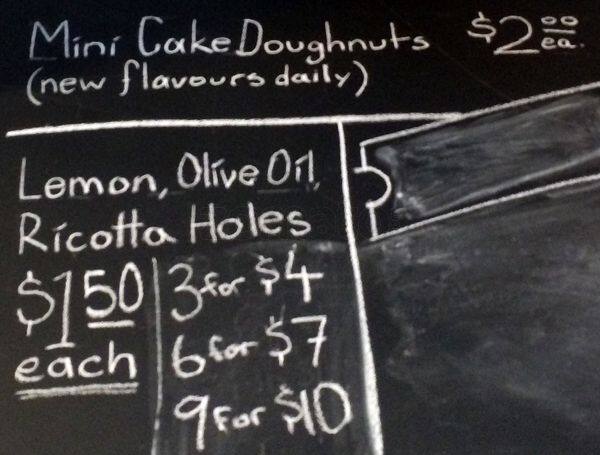 Mini Cake Doughnuts $2.00 ea.
(new flavours daily)
Lemon, Olive Oil,
Ricotta Holes
$1.50 each
3 for $4
6 for $7
9 for $10